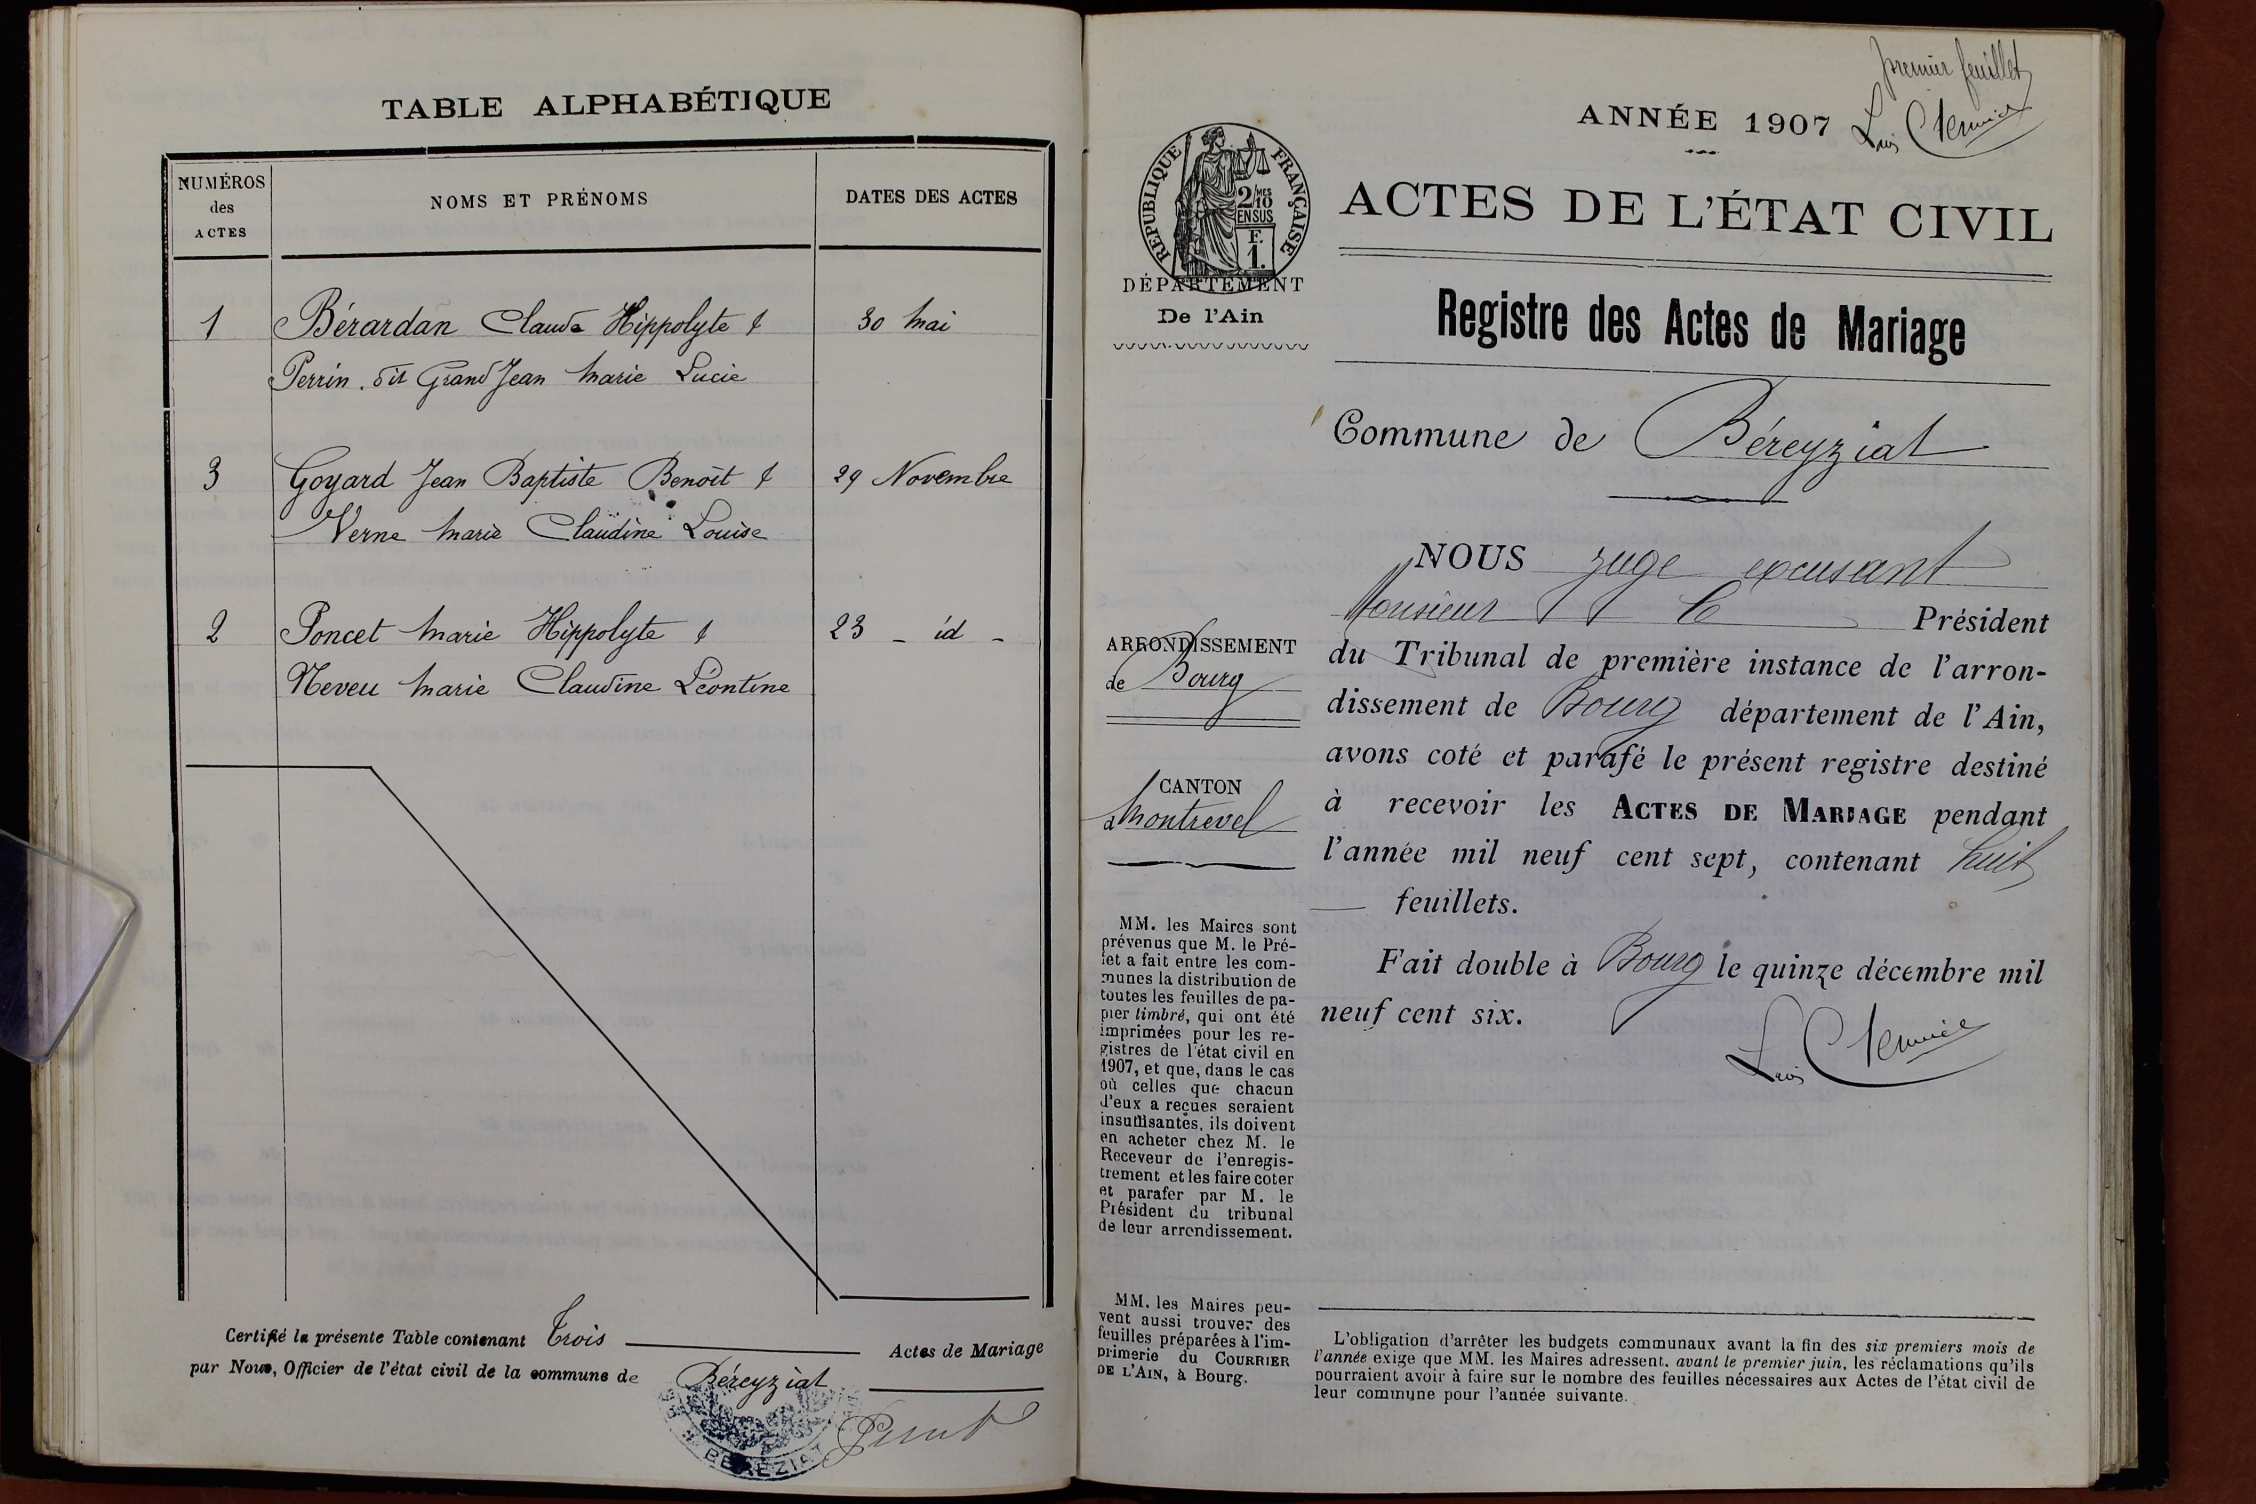 TABLE ALPHABÉTIQUE
NUMÉROS
des
ACTES
NOMS ET PRÉNOMS
DATES DES ACTES
1 Bérardan Claude Hippolyte & 30 Mai
Perrin dit GrandJean Marie Lucie
3 Goyard Jean Baptiste Benoît & 29 Novembre
Verne Marie Claudine Louise
2 Poncet Marie Hippolyte & 23 - id -
Neveu Marie Claudine Léontine
Certifié la présente Table contenant Trois Actes de Mariage
par Nous, Officier de l'état civil de la commune de Béreyziat
BÉRÉZIAT
premier feuillet
ANNÉE 1907
RÉPUBLIQUE FRANÇAISE
2/10MES
EN SUS
F.
1.
ACTES DE L'ÉTAT CIVIL
DÉPARTEMENT
De l'Ain
Registre des Actes de Mariage
Commune de Béreyziat
NOUS juge excusant
Monsieur le Président
ARRONDISSEMENT
de Bourg
du Tribunal de première instance de l'arron-
dissement de Bourg département de l'Ain,
avons coté et parafé le présent registre destiné
CANTON
d Montrevel
à recevoir les ACTES DE MARIAGE pendant
l'année mil neuf cent sept, contenant huit
feuillets.
Fait double à Bourg le quinze décembre mil
neuf cent six.
MM. les Maires sont
prévenus que M. le Pré-
fet a fait entre les com-
munes la distribution de
toutes les feuilles de pa-
pier timbré, qui ont été
imprimées pour les re-
gistres de l'état civil en
1907, et que, dans le cas
où celles que chacun
d'eux a reçues seraient
insuffisantes, ils doivent
en acheter chez M. le
Receveur de l'enregis-
trement et les faire coter
et parafer par M. le
Président du tribunal
de leur arrondissement.
MM. les Maires peu-
vent aussi trouver des
feuilles préparées à l'im-
primerie du COURRIER
DE L'AIN, à Bourg.
L'obligation d'arrêter les budgets communaux avant la fin des six premiers mois de
l'année exige que MM. les Maires adressent, avant le premier juin, les réclamations qu'ils
pourraient avoir à faire sur le nombre des feuilles nécessaires aux Actes de l'état civil de
leur commune pour l'année suivante.